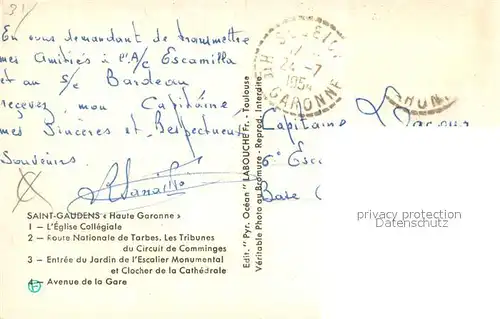 31
En vous demandant de transmettre
mes Amitiés à l'A/c Escamilla
et au S/c Bardeau
recevez, mon Capitaine,
mes Sincères et Respectueux
Souvenirs
SAINT-GAUDENS « Haute Garonne »
1 — L'Église Collégiale
2 — Route Nationale de Tarbes. Les Tribunes
du Circuit de Comminges
3 — Entrée du Jardin de l'Escalier Monumental
et Clocher de la Cathédrale
4 — Avenue de la Gare
Edit. "Pyr. Océan" LABOUCHE Fr. - Toulouse
Véritable Photo au Bromure - Reprod. Interdite
24-7
1954
Hte GARONNE
Capitaine
6e Esc
Base
privacy protection
Datenschutz